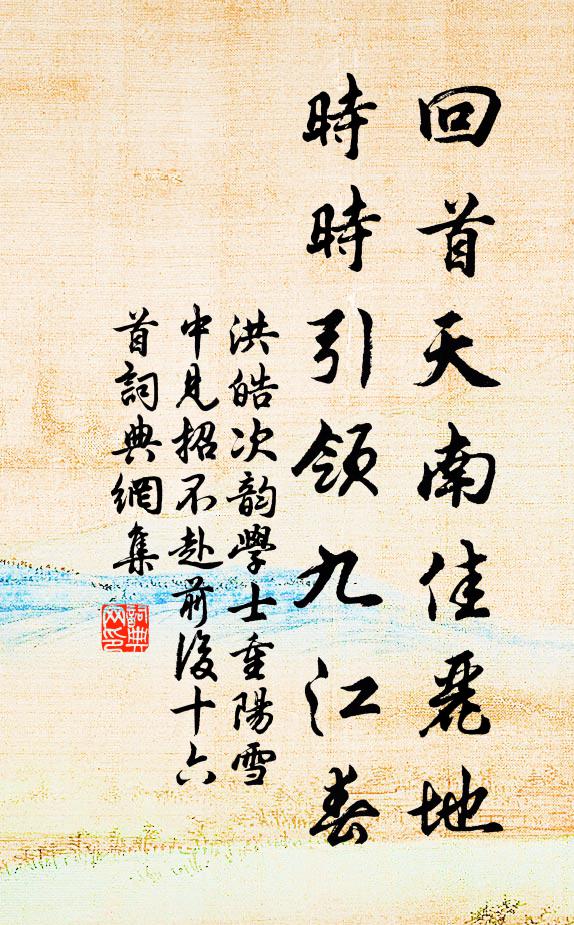 回首天南佳麗地
時時引領九江春
洪皓次韵學士重陽雪
中見招不赴前後十六
首詞典網集
詞典
网印